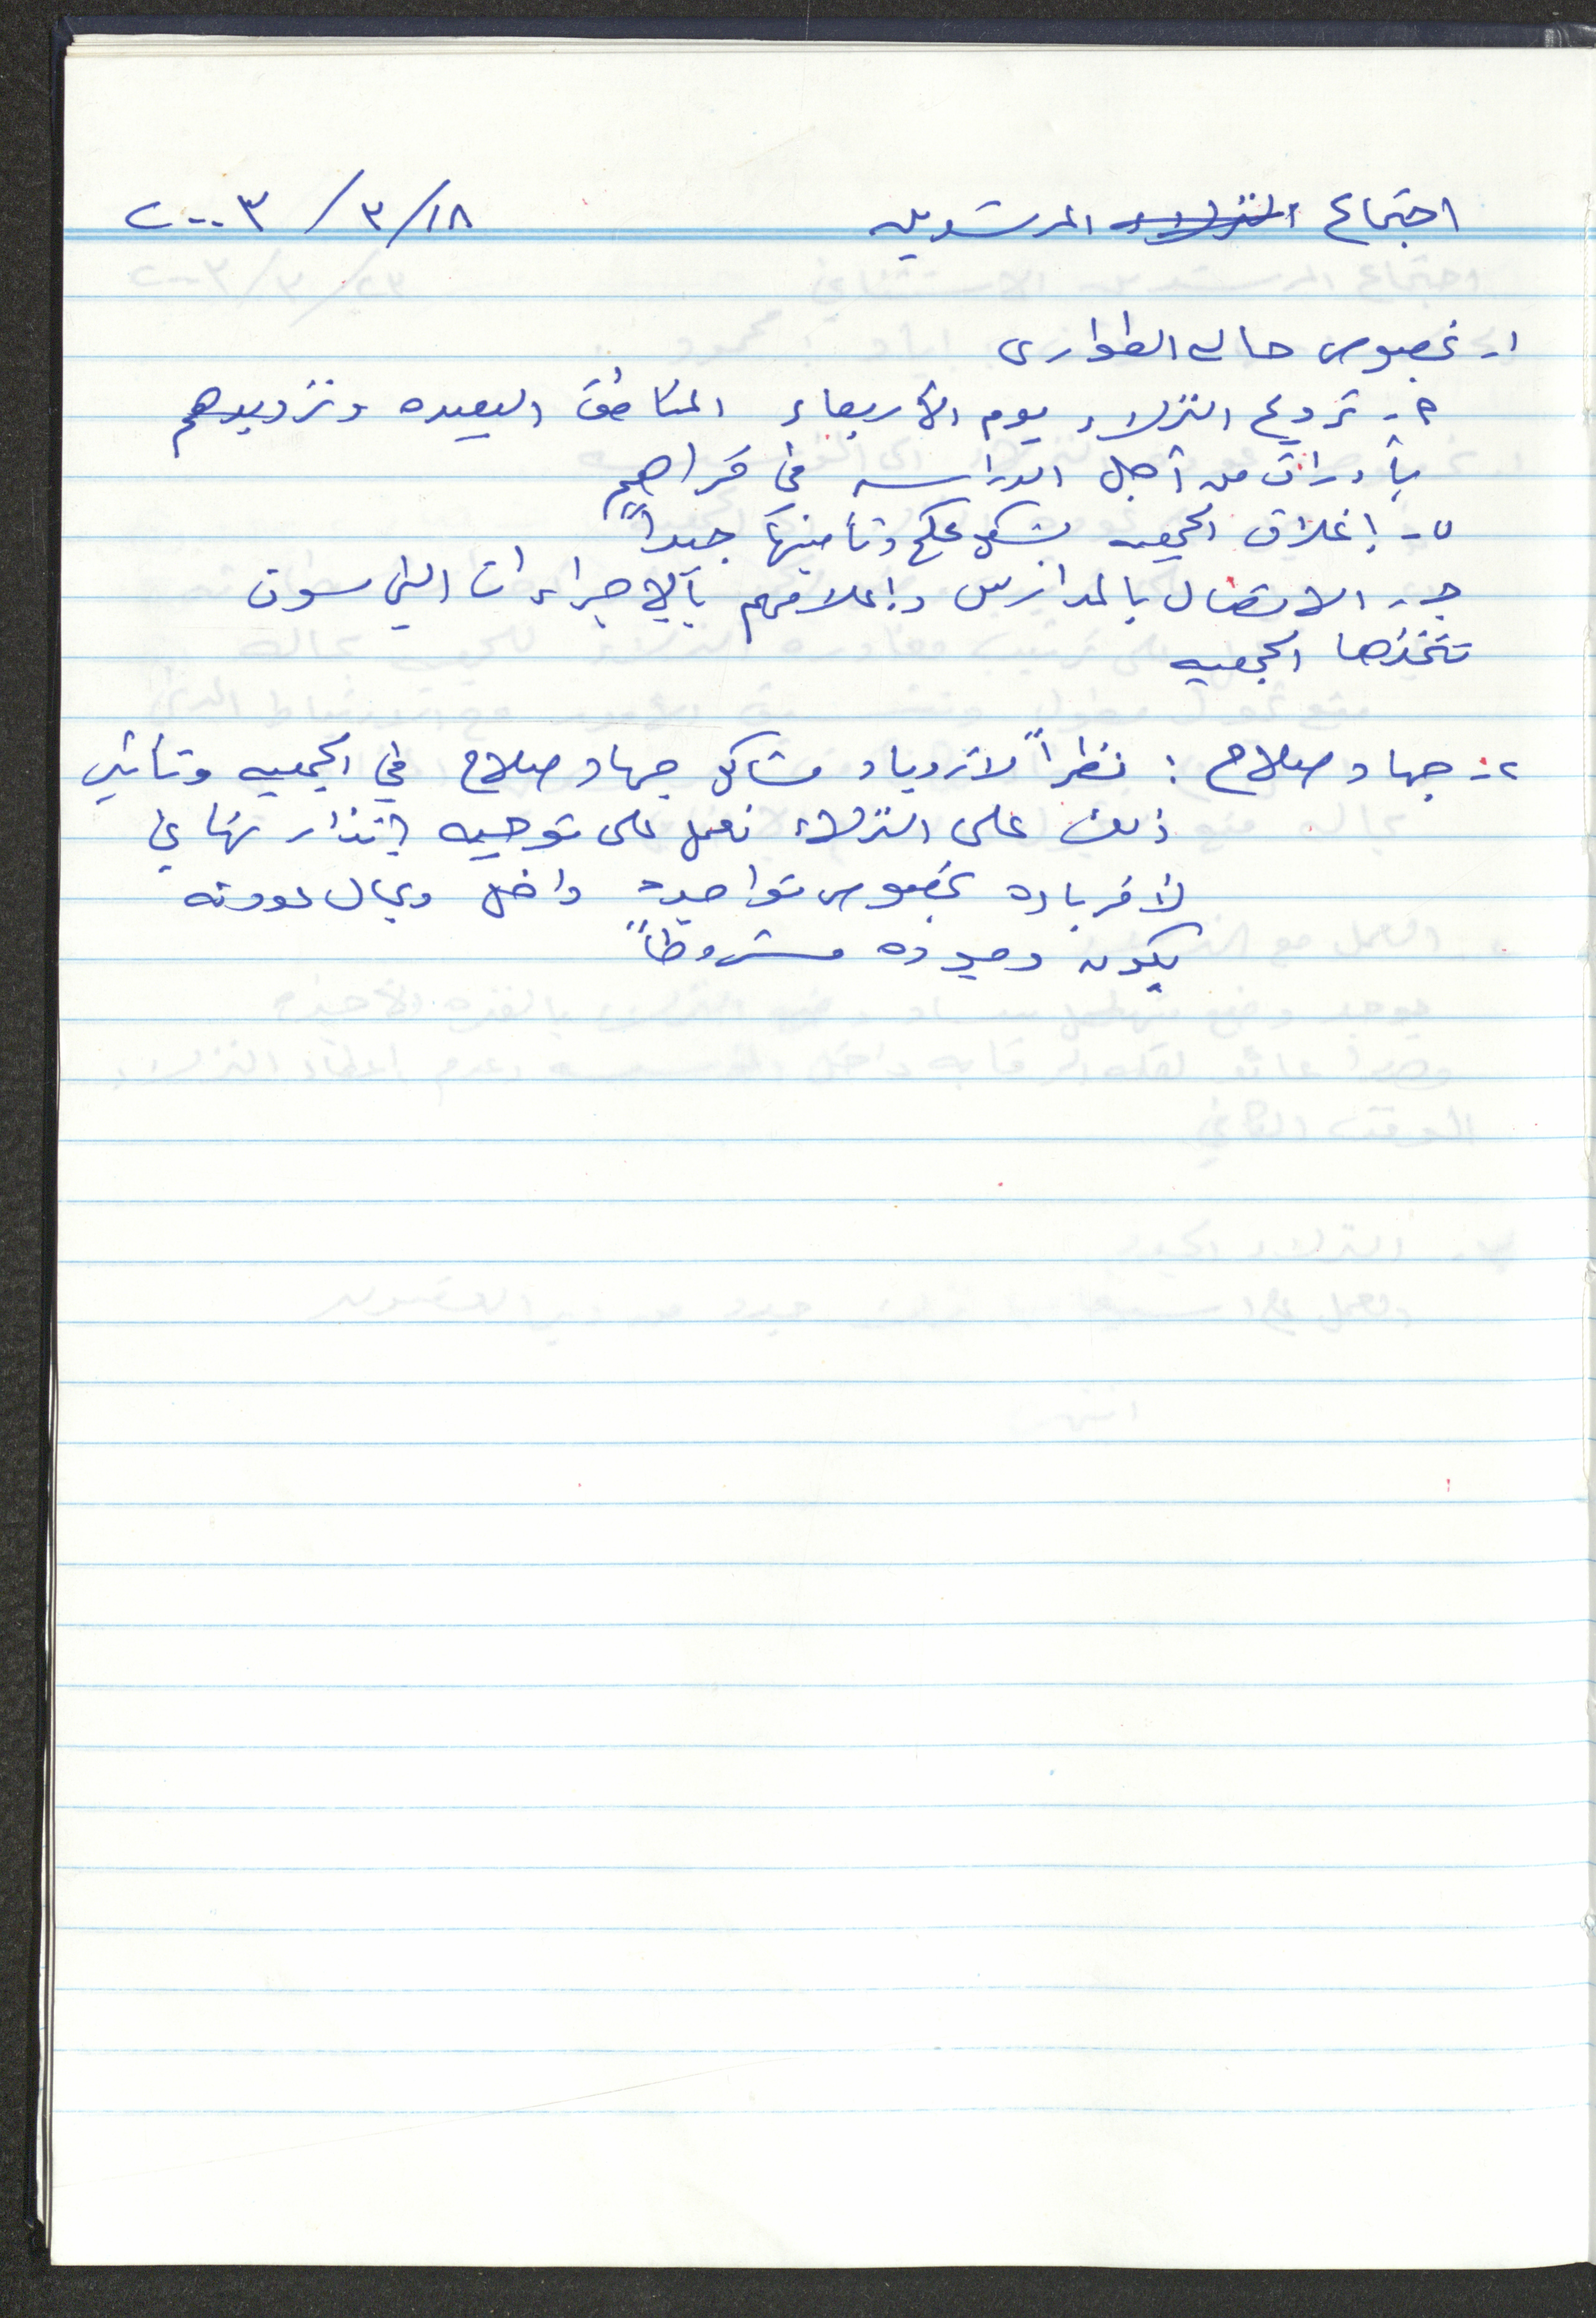 اجتماع النزلاء المرشدين ١٨/٣/٢٠٠٣
١- بخصوص حاله الطوارئ
٩- ترويح النزلاء يوم الأربعاء المناطق البعيده وتزويدهم
بأوراق من أجل الدراسه في قراهم
ب- إغلاق الجمعيه بشكل محكم وتأمينها جيداً
جـ- الاتصال بالمدارس وإعلامهم بالإجراءات التي سوف
تتخذها الجمعيه
٢- جهاد صلاح : نظراً لازدياد مشاكل جهاد صلاح في الجمعيه وتأثير
ذلك على النزلاء نعمل على توجيه انذار نهائي
لأقرباءه بخصوص تواجده داخل وبحال عودته
يكون وجوده مشروطاً